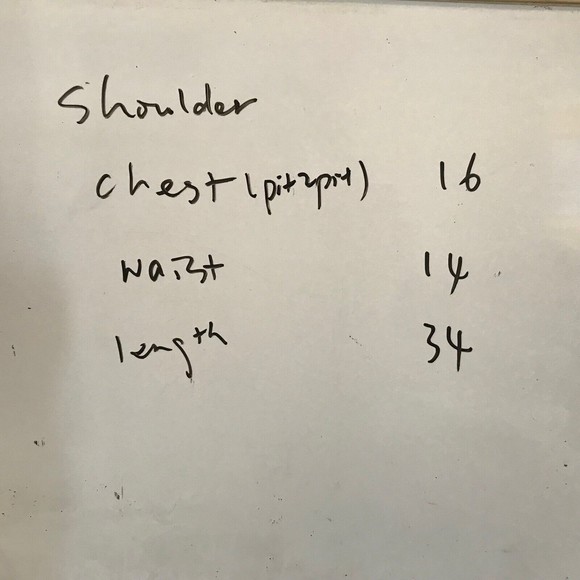 Shoulder
chest (pit2pit) 16
waist 14
length 34